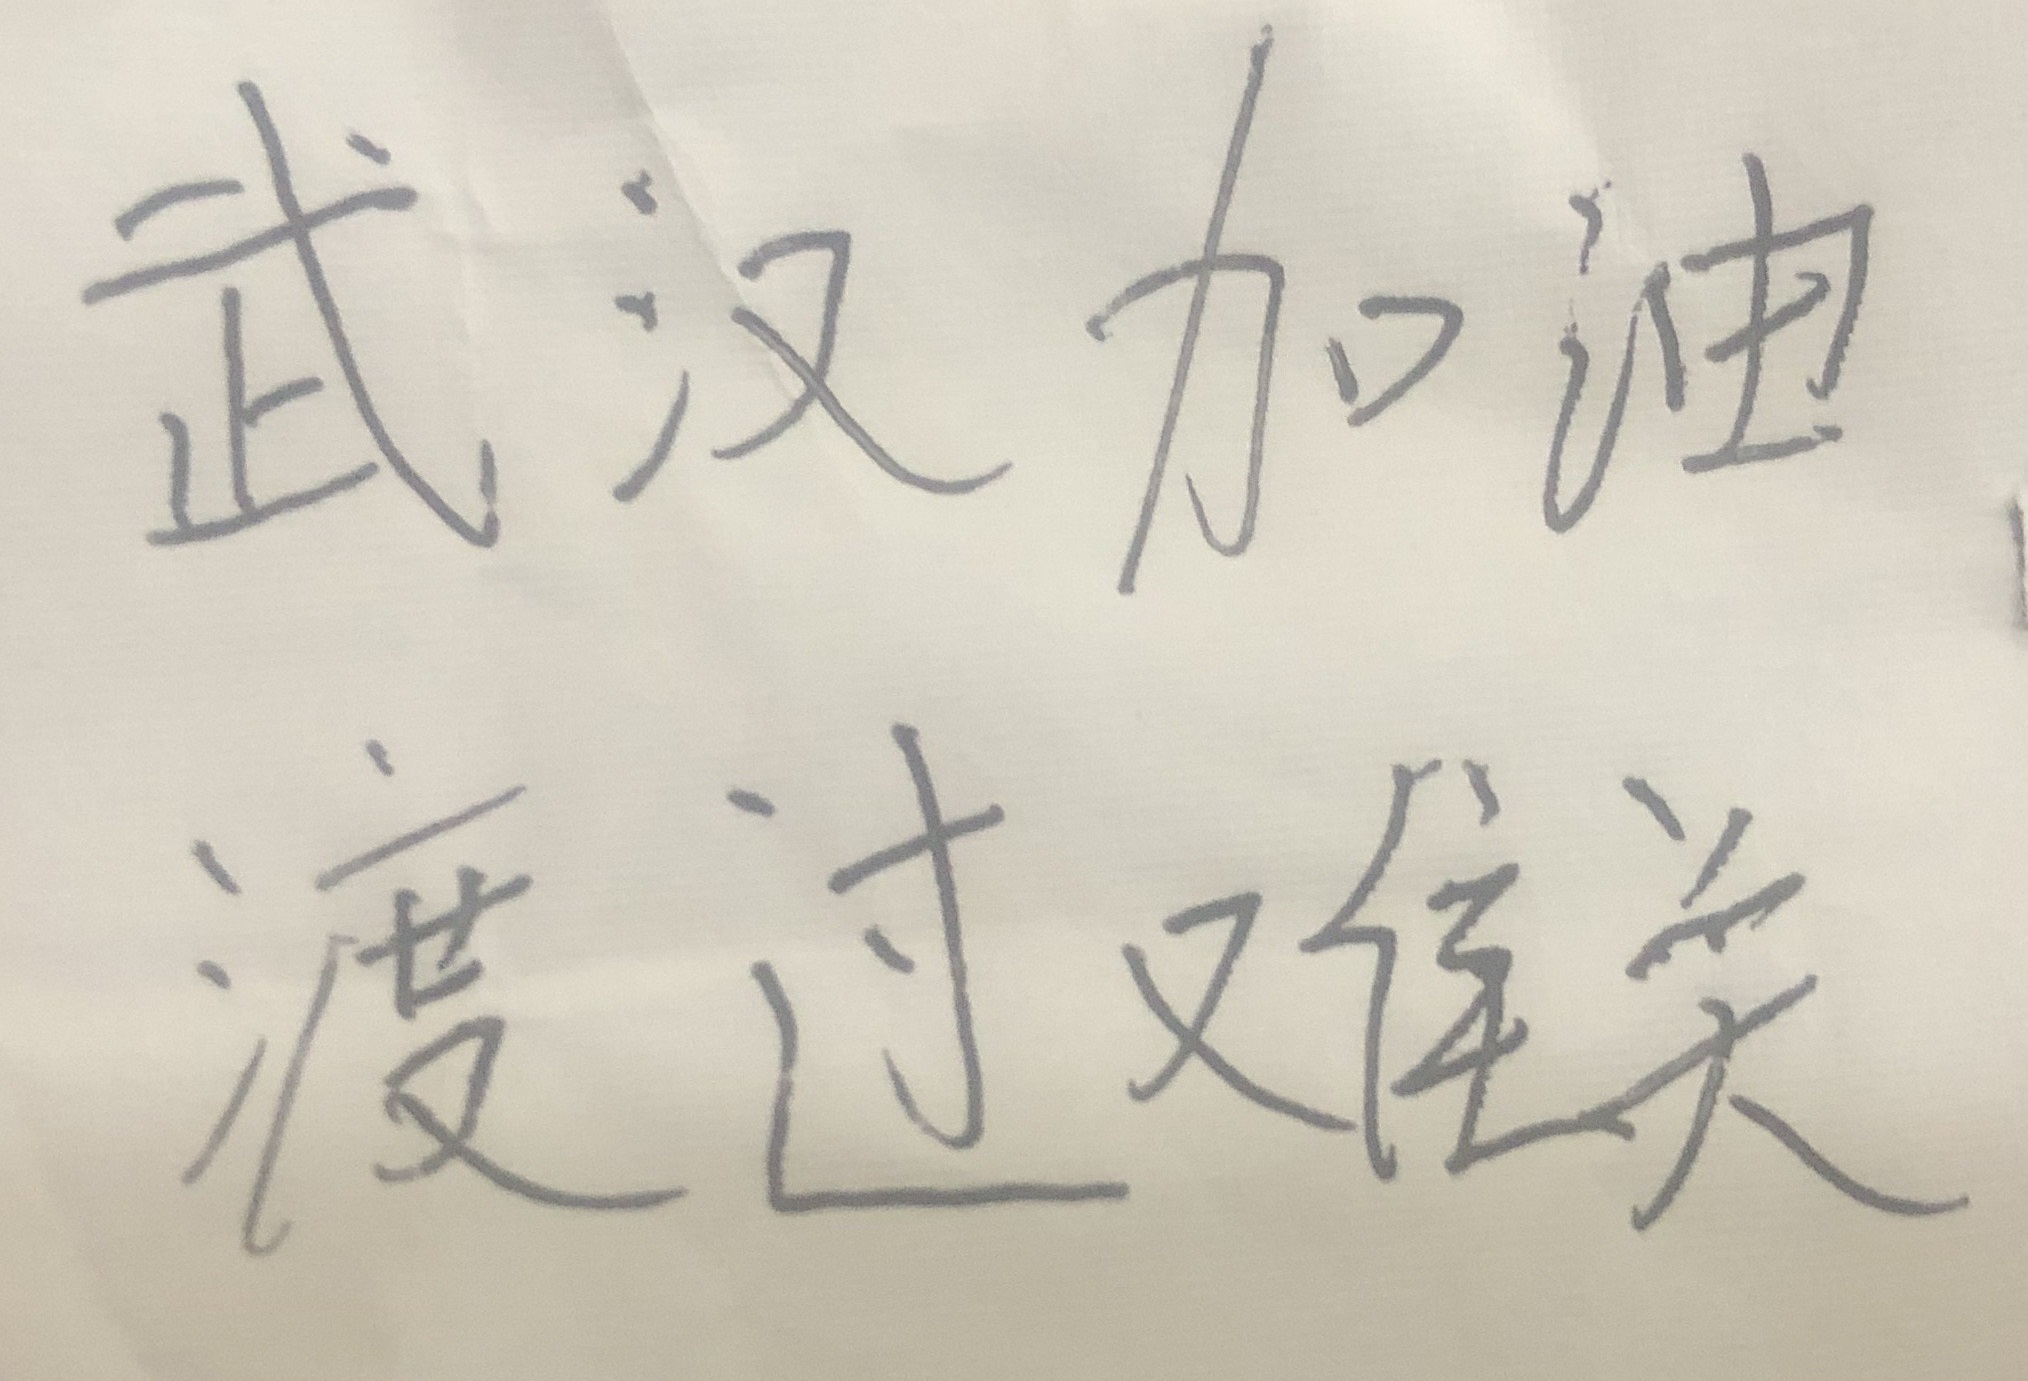 武汉加油
渡过难关